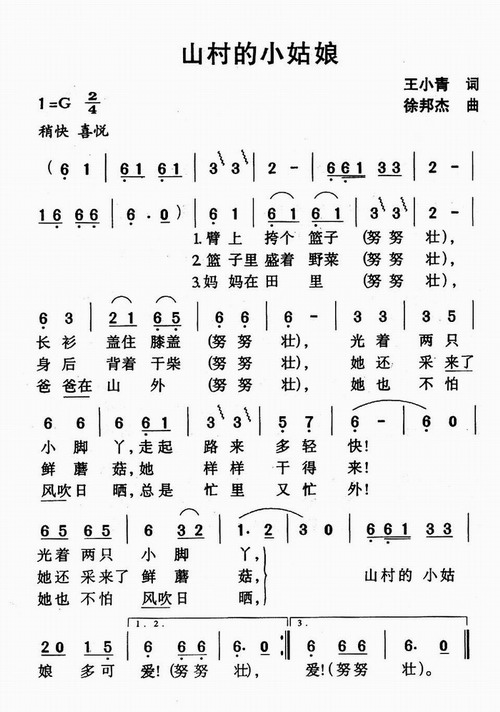 山村的小姑娘
王小青 词
1=G 2/4
徐邦杰 曲
稍快 喜悦
(6 1 | 61 61 | 3 3 | 2 - | 6 61 33 | 2 - |
16 66 | 6·0) | 6 1 | 61 61 | 3 3 | 2 - |
1.臂上 挎个 篮子 (努努 壮),
2.篮子里 盛着 野菜 (努努 壮),
3.妈妈在 田 里 (努努 壮),
6 3 | 21 65 | 6 1 | 6 - | 3 3 | 2 1 |
长衫 盖住 膝盖 (努努 壮), 光着 两只
身后 背着 干柴 (努努 壮), 她还 采来了
爸爸在 山 外 (努努 壮), 她也 不怕
6 6 | 6 61 | 3 3 | 5 7 | 6 - | 6 0 |
小脚 丫,走起 路来 多轻 快!
鲜蘑 菇,她 样样 干得 来!
风吹日 晒,总是 忙里 又忙 外!
65 65 | 6 32 | 1·2 | 3 0 | 6 61 33 |
光着 两只 小 脚 丫,
她还 采来了 鲜 蘑 菇, 山村的 小姑
她也 不怕 风吹日 晒,
1. 2. 3.
20 15 | 6 66 | 6·0 :| 6 66 | 6·0 ‖
娘 多可 爱!(努努 壮), 爱!(努努 壮)。